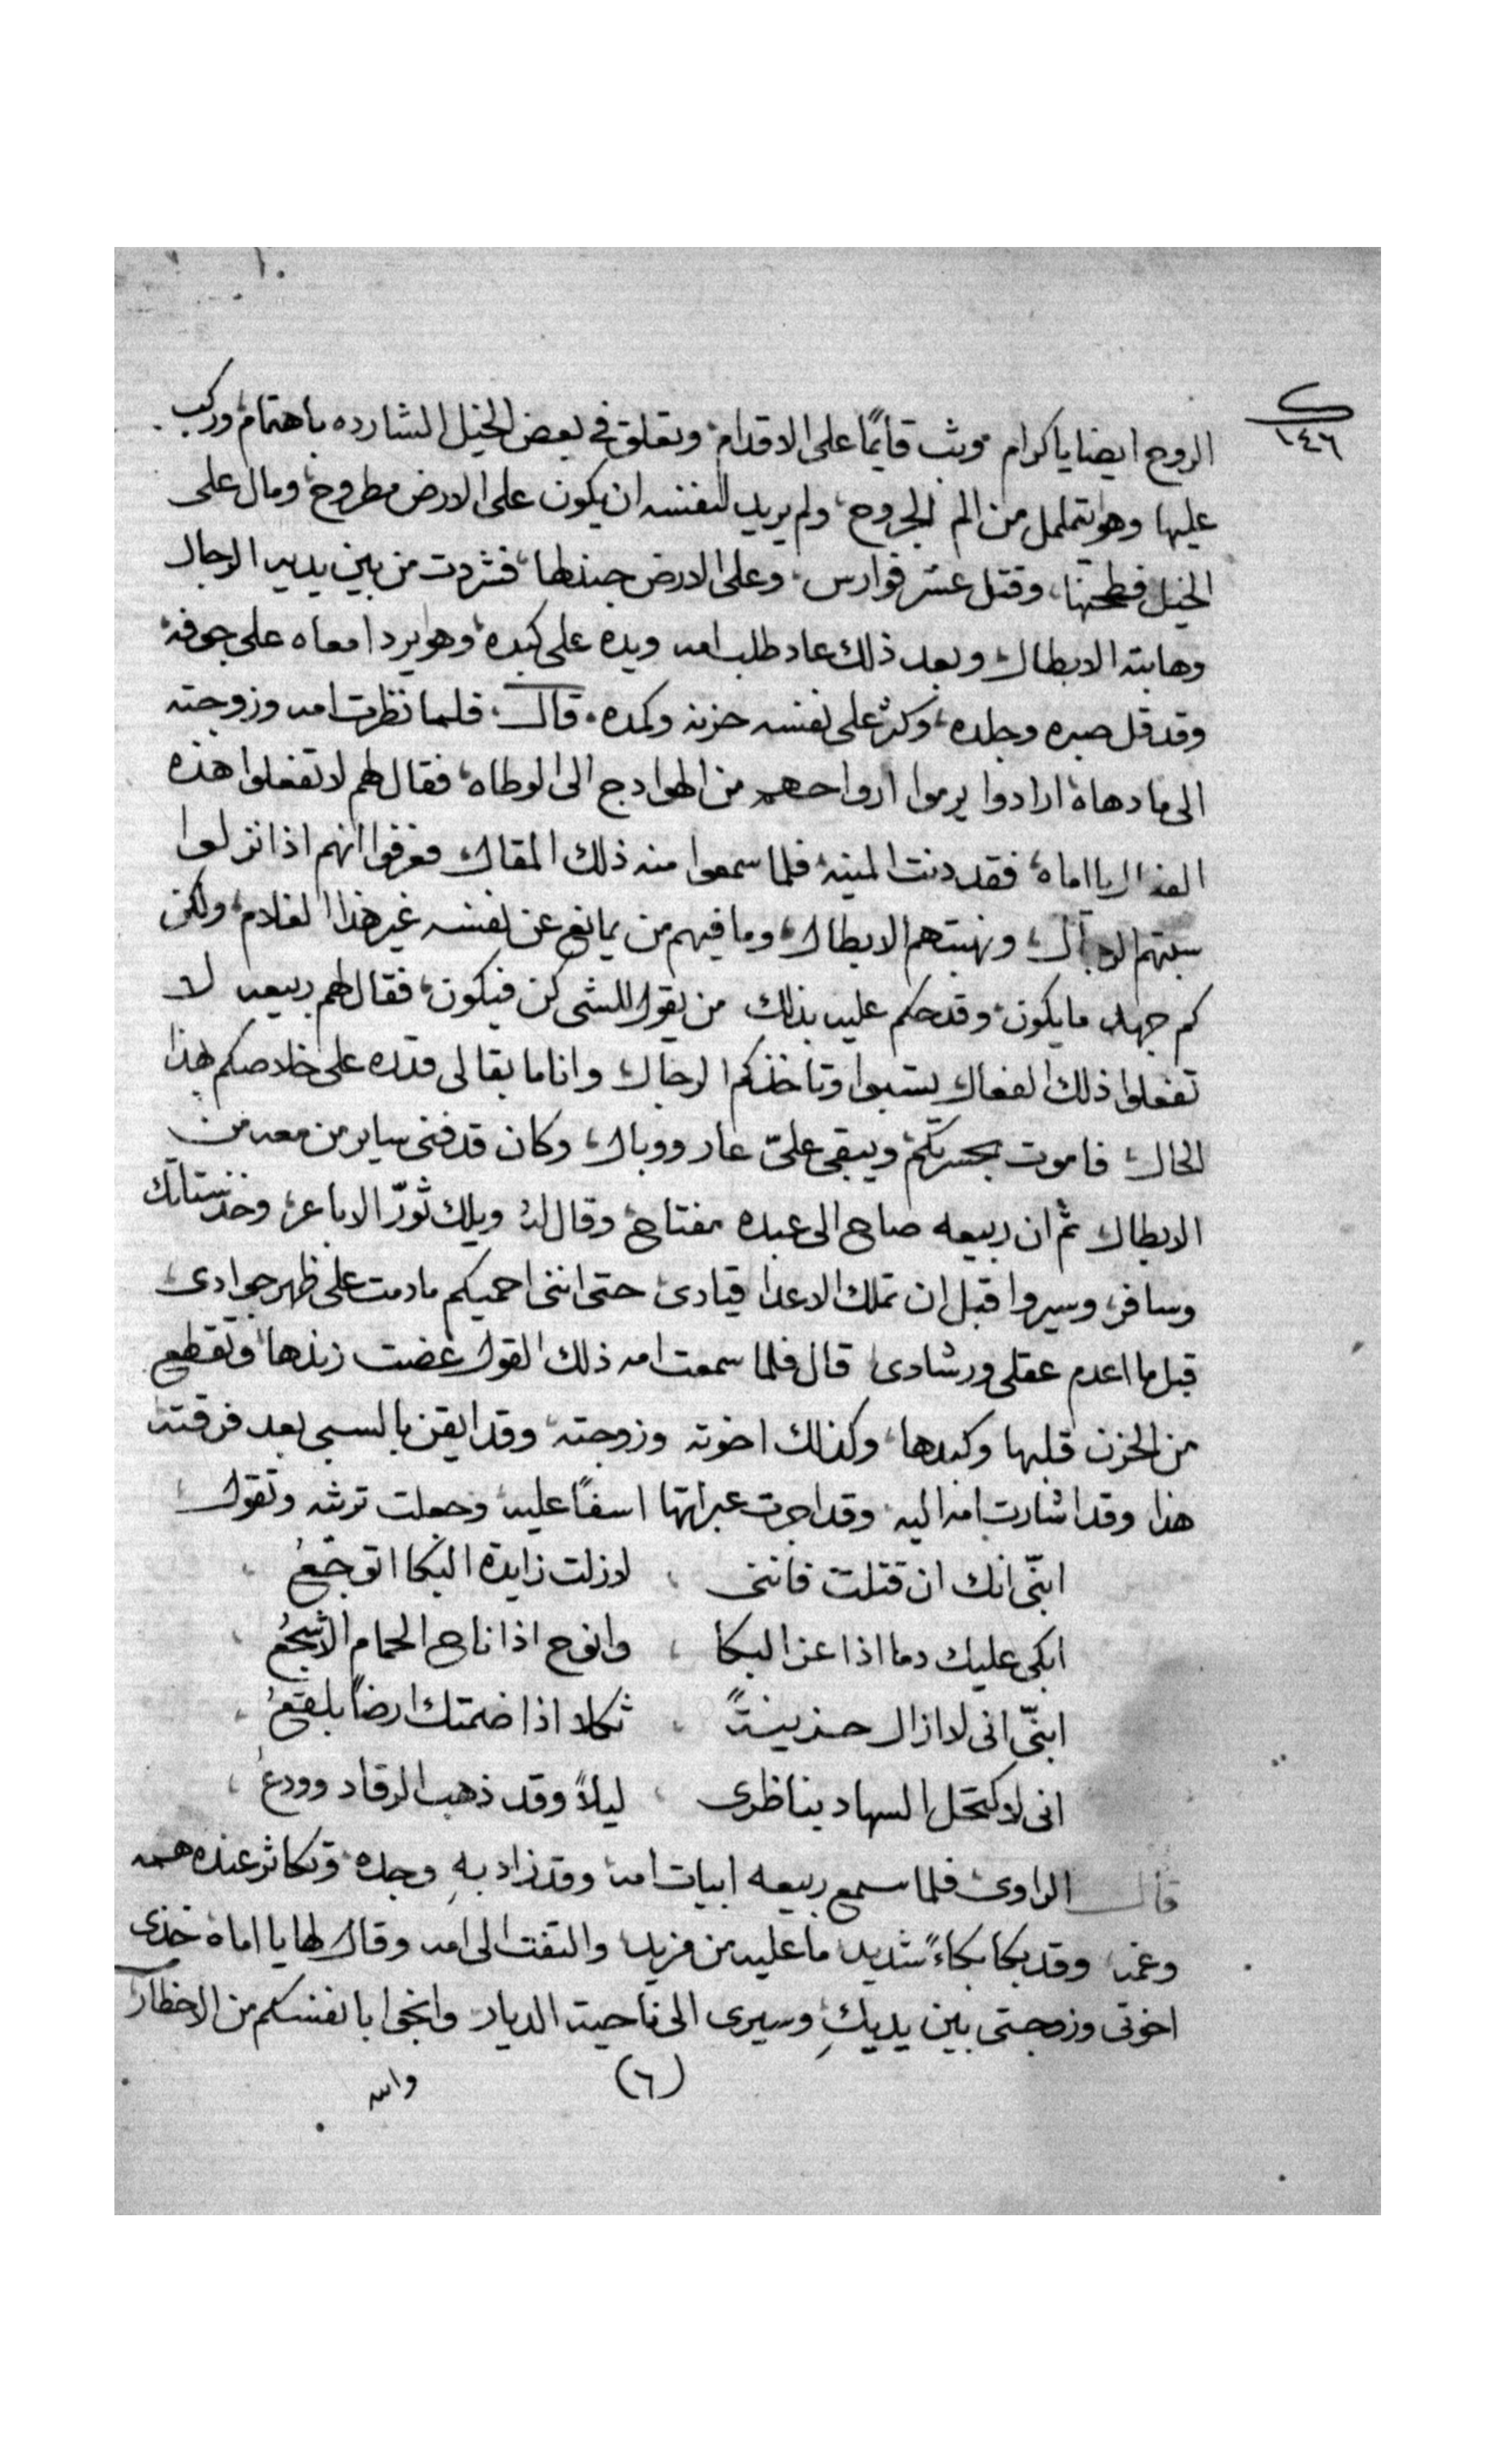 ك
١٤٦
الروح ايضا يا كرام وثب قايمًا على الاقدام وتعلق في بعض الخيل الشارده باهتمام وركب
عليها وهو يتململ من الم الجروح ولم يريد لنفسه ان يكون على الارض مطروح ومال على
الخيل فطحنها وقتل عشر فوارس وعلى الارض جندلها فشردت من بين يديه الرجال
وهابته الابطال وبعد ذلك عاد طلب امه ويده على كبده وهو يرد امعاه على جوفه
وقد قل صبره وجلده وكثر على نفسه حزنه وكمده قال فلما نظرت امه وزوجته
الى ما دهاه ارادوا يرموا ارواحهم من الهوادج الى الوطاه فقال لهم لا تفعلوا هذه
الفعال يا اماه فقد دنت المنيه فلما سمعوا منه ذلك المقال فعرفوا انهم اذا نزلوا
سبتهم الرجال ونهبتهم الابطال وما فيهم من يمانع عن نفسه غير هذا الغلام ولكن
كم جهد ما يكون وقد حكم عليه بذلك من يقول للشى كن فيكون فقال لهم ربيعه لا
تفعلوا ذلك الفعال يستبوا وتاخذكم الرجال وانا ما بقا لى قدره على خلاصكم بهذا
الحال فاموت بحسرتكم ويبقى علىّ عار ووبال وكان قد فنى ساير من معه من
الابطال ثم ان ربيعه صاح الى عبده مفتاح وقال له ويلك ثوّر الاباعر وخذ ستاتك
وسافر وسيروا قبل ان تملك الاعدا قيادى حتى اننى احميكم ما دمت على ظهر جوادى
قبل ما اعدم عقلى ورشادى قال فلما سمعت امه ذلك القول عضت زندها وتقطع
من الحزن قلبها وكبدها وكذلك اخوته وزوجته وقد ايقن بالسبى بعد فرقته
هذا وقد اشارت امه اليه وقد اجرت عبراتها اسفًا عليه وجعلت ترثه وتقول
ابنّى انك ان قتلت فاننى لا زلت زايدة البكا اتوجّعُ
ابكى عليك دما اذا عز البكا وانوح اذا ناح الحمام الاسجعُ
ابنّى انى لا ازال حزينةً ثكلا اذا ضمتك ارضًا بلقعُ
انى لا كتحل السهاد بناظرى ليلاً وقد ذهب الرقاد وودعُ
قال الراوى فلما سمع ربيعه ابيات امه وقد زاد بهِ وجده وتكاثر عنده همه
وغمه وقد بكا بكاءً شديد ما عليه من مزيد والتفت الى امه وقال لها يا اماه خذى
اخوتى وزوجتى بين يديكِ وسيرى الى ناحية الديار وانجوا بانفسكم من الاخطار
(٦)
والله